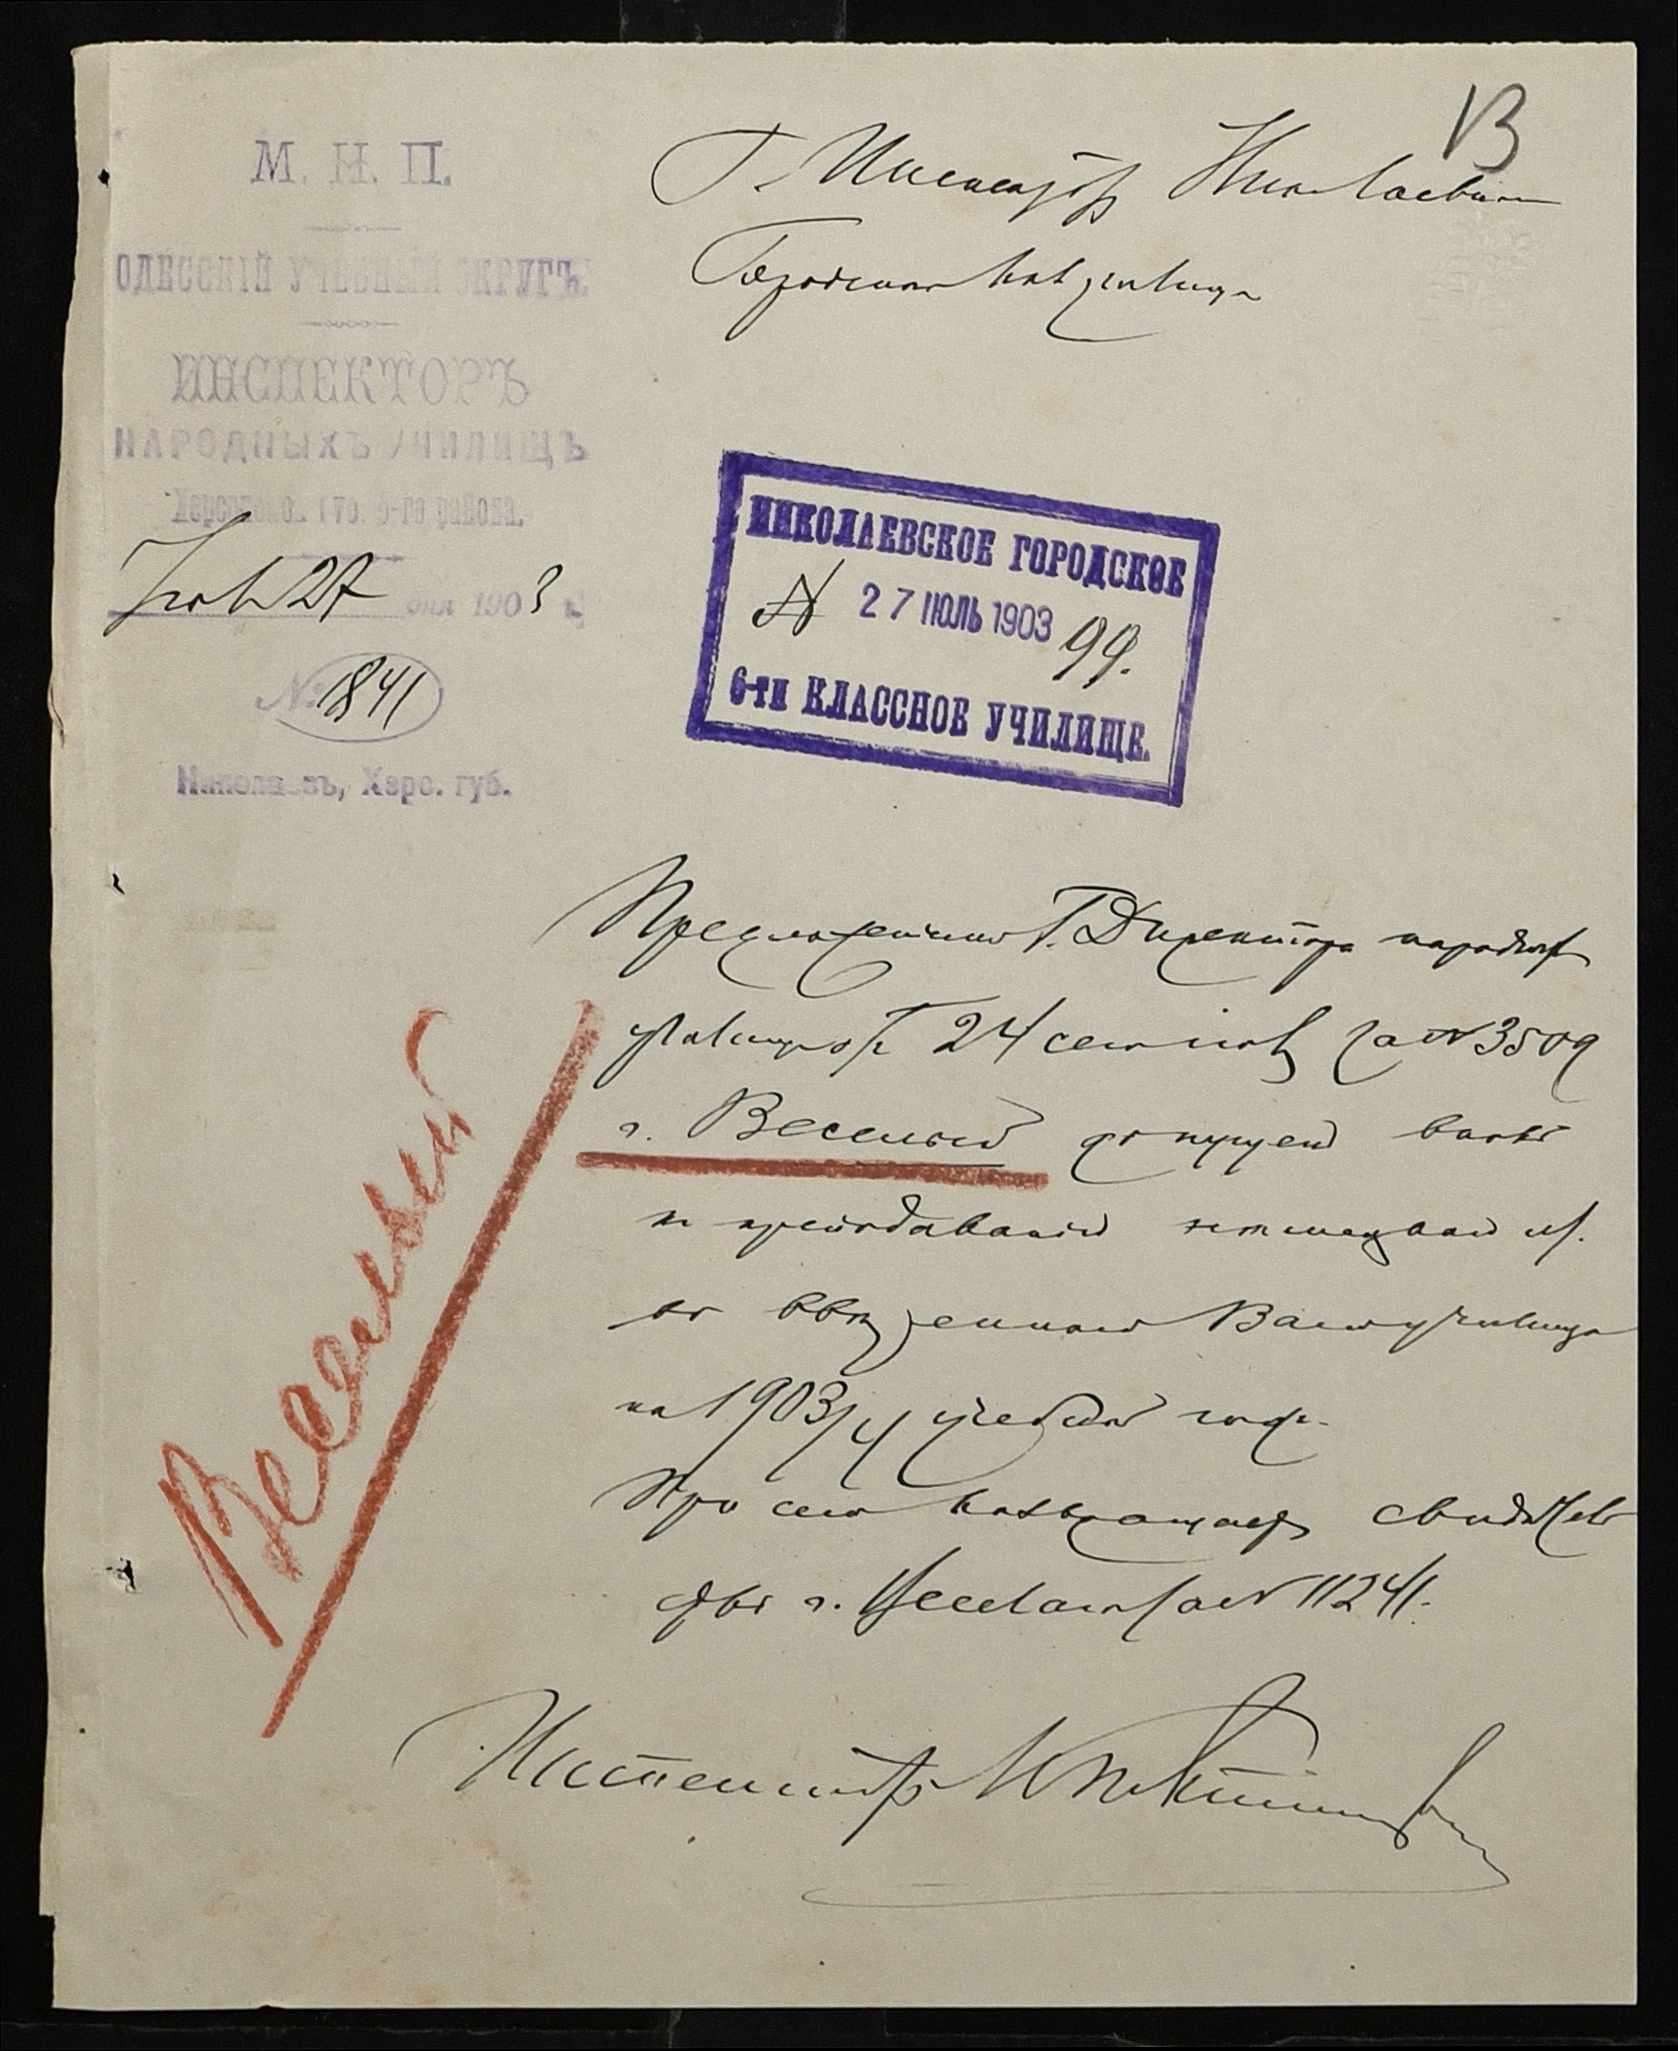 13
М. Н. П.
ОДЕССКІЙ УЧЕБНЫЙ ОКРУГЪ.
ИНСПЕКТОРЪ
НАРОДНЫХЪ УЧИЛИЩЪ
Херсонской губ. 6-го района.
27 дня 1903 г.
№ 1841
Николаевъ, Херс. губ.
Г. Инспектору Николаевскаго
Городского училища
НИКОЛАЕВСКОЕ ГОРОДСКОЕ
№ 27 ІЮЛЬ 1903 99.
6-ти КЛАССНОЕ УЧИЛИЩЕ.
Предложеніемъ Г. Директора народныхъ
училищъ отъ 24 за № 3509
г. Веселый допущенъ
къ преподаванію
во ввѣренномъ Вамъ училищѣ
на 1903/4 учебный годъ.
При семъ возвращаю свидѣтель
ство г. за № 11241.
Инспекторъ
Веселый